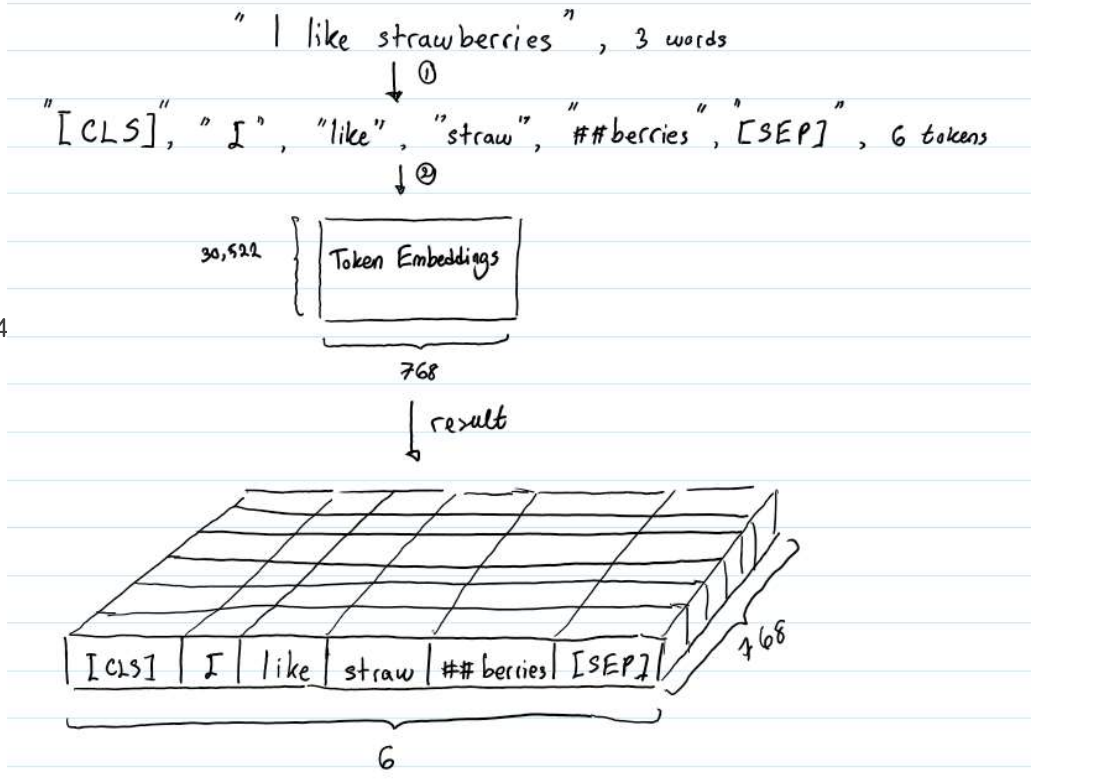 " I like strawberries ", 3 words
①
"[CLS]", "I", "like", "straw", "##berries", "[SEP]", 6 tokens
②
30,522
Token Embeddings
768
result
[CLS] I like straw ##berries [SEP]
768
6
4